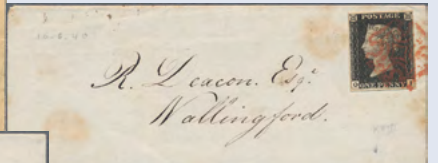 10.8.40
POSTAGE
ONE PENNY
R. Deacon. Esqr.
Wallingford.